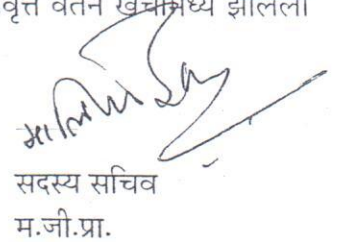 वृत्त वेतन खर्चामध्ये झालेला
सदस्य सचिव
म.जी.प्रा.